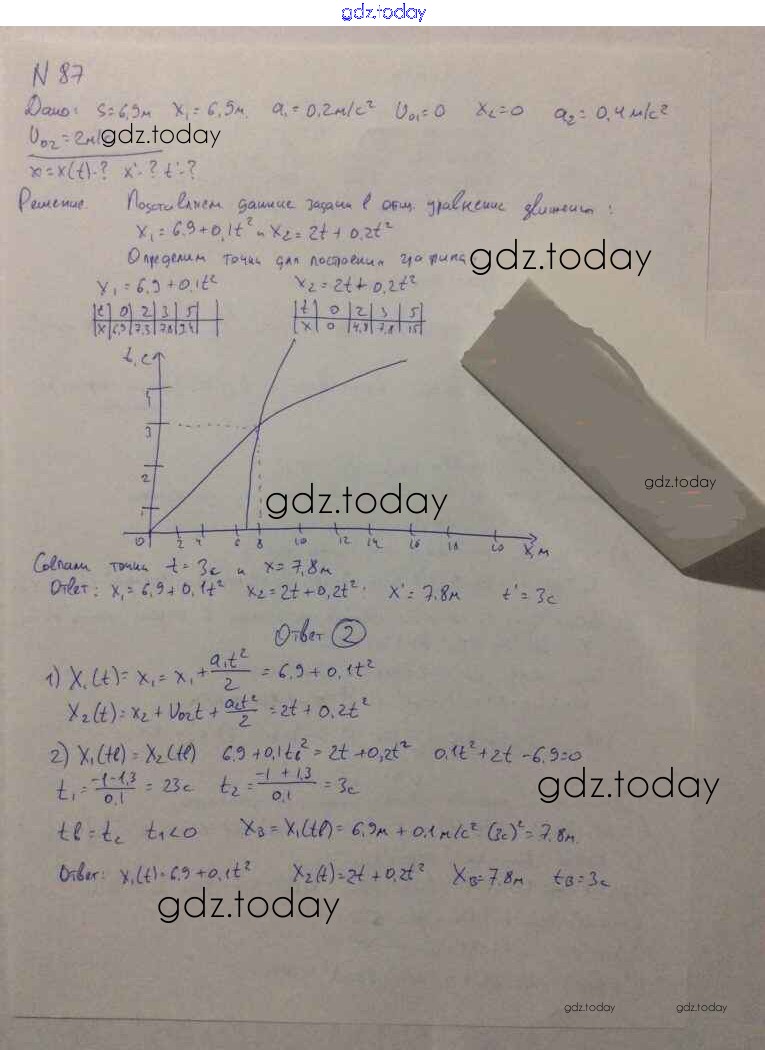 gdz.today
N 87
Дано: S=6,9м X₁=6,9м a₁=0,2м/с² U₀₁=0 X₂=0 a₂=0,4м/с²
U₀₂=2м/ gdz.today
x=x(t)-? x'-? t'-?
Решение. Подставляем данные задачи в общ. уравнение движения:
X₁=6,9+0,1t² и X₂=2t+0,2t²
Определим точки для построения графика gdz.today
X₁=6,9+0,1t² X₂=2t+0,2t²
t 0 2 3 5 t 0 2 3 5
x 6,9 7,3 7,8 9,4 x 0 4,8 7,8 15
t,c
3
gdz.today
2
gdz.today
1
0 2 4 6 8 10 12 14 16 18 20 X,м
Совпали точки t=3с и x=7,8м
Ответ: X₁=6,9+0,1t² X₂=2t+0,2t²; X'=7,8м t'=3с
Ответ 2
1) X₁(t)=x₁=x₁+a₁t²/2=6,9+0,1t²
X₂(t)=x₂+U₀₂t+a₂t²/2=2t+0,2t²
2) X₁(tв)=X₂(tв) 6,9+0,1tв²=2t+0,2t² 0,1t²+2t-6,9=0
t₁=-1-1,3/0,1=23с t₂=-1+1,3/0,1=3с gdz.today
tв=t₂ t₁<0 Xв=X₁(tв)=6,9м+0,1м/с²(3с)²=7,8м
Ответ: X₁(t)=6,9+0,1t² X₂(t)=2t+0,2t² Xв=7,8м tв=3с
gdz.today
gdz.today gdz.today